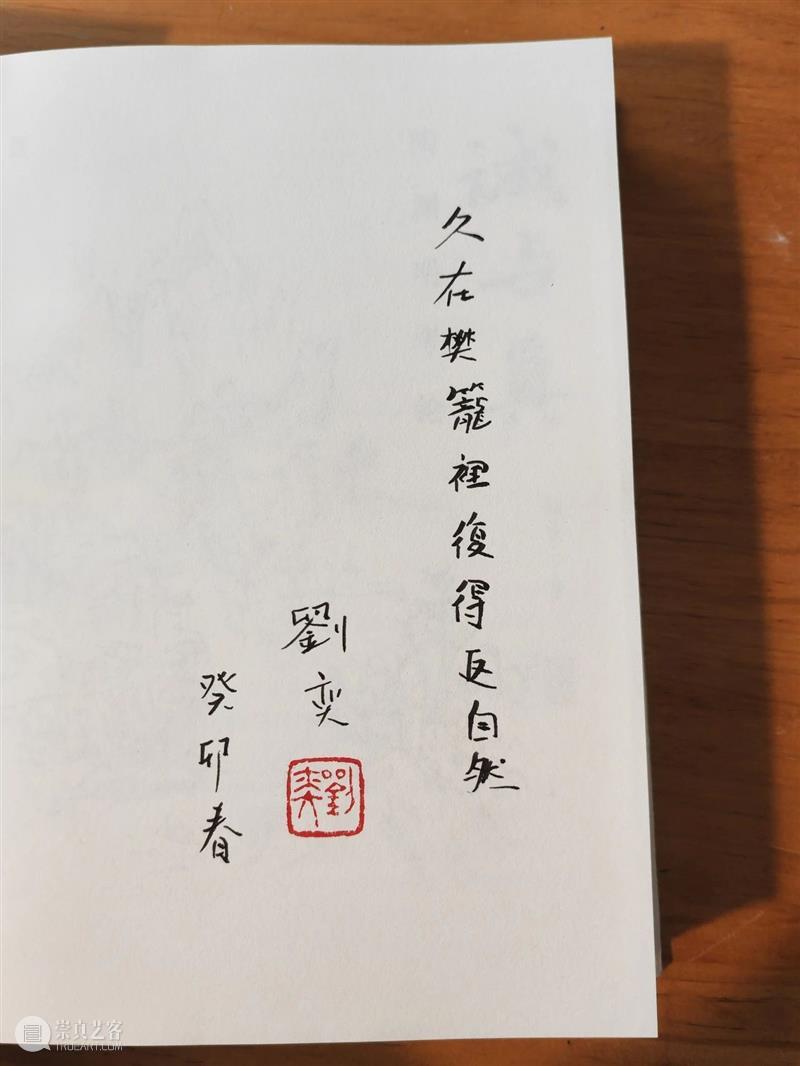 久在樊籠裡復得返自然
劉奕
癸卯春
劉奕
崇真艺客
WWW.TRUEART.COM